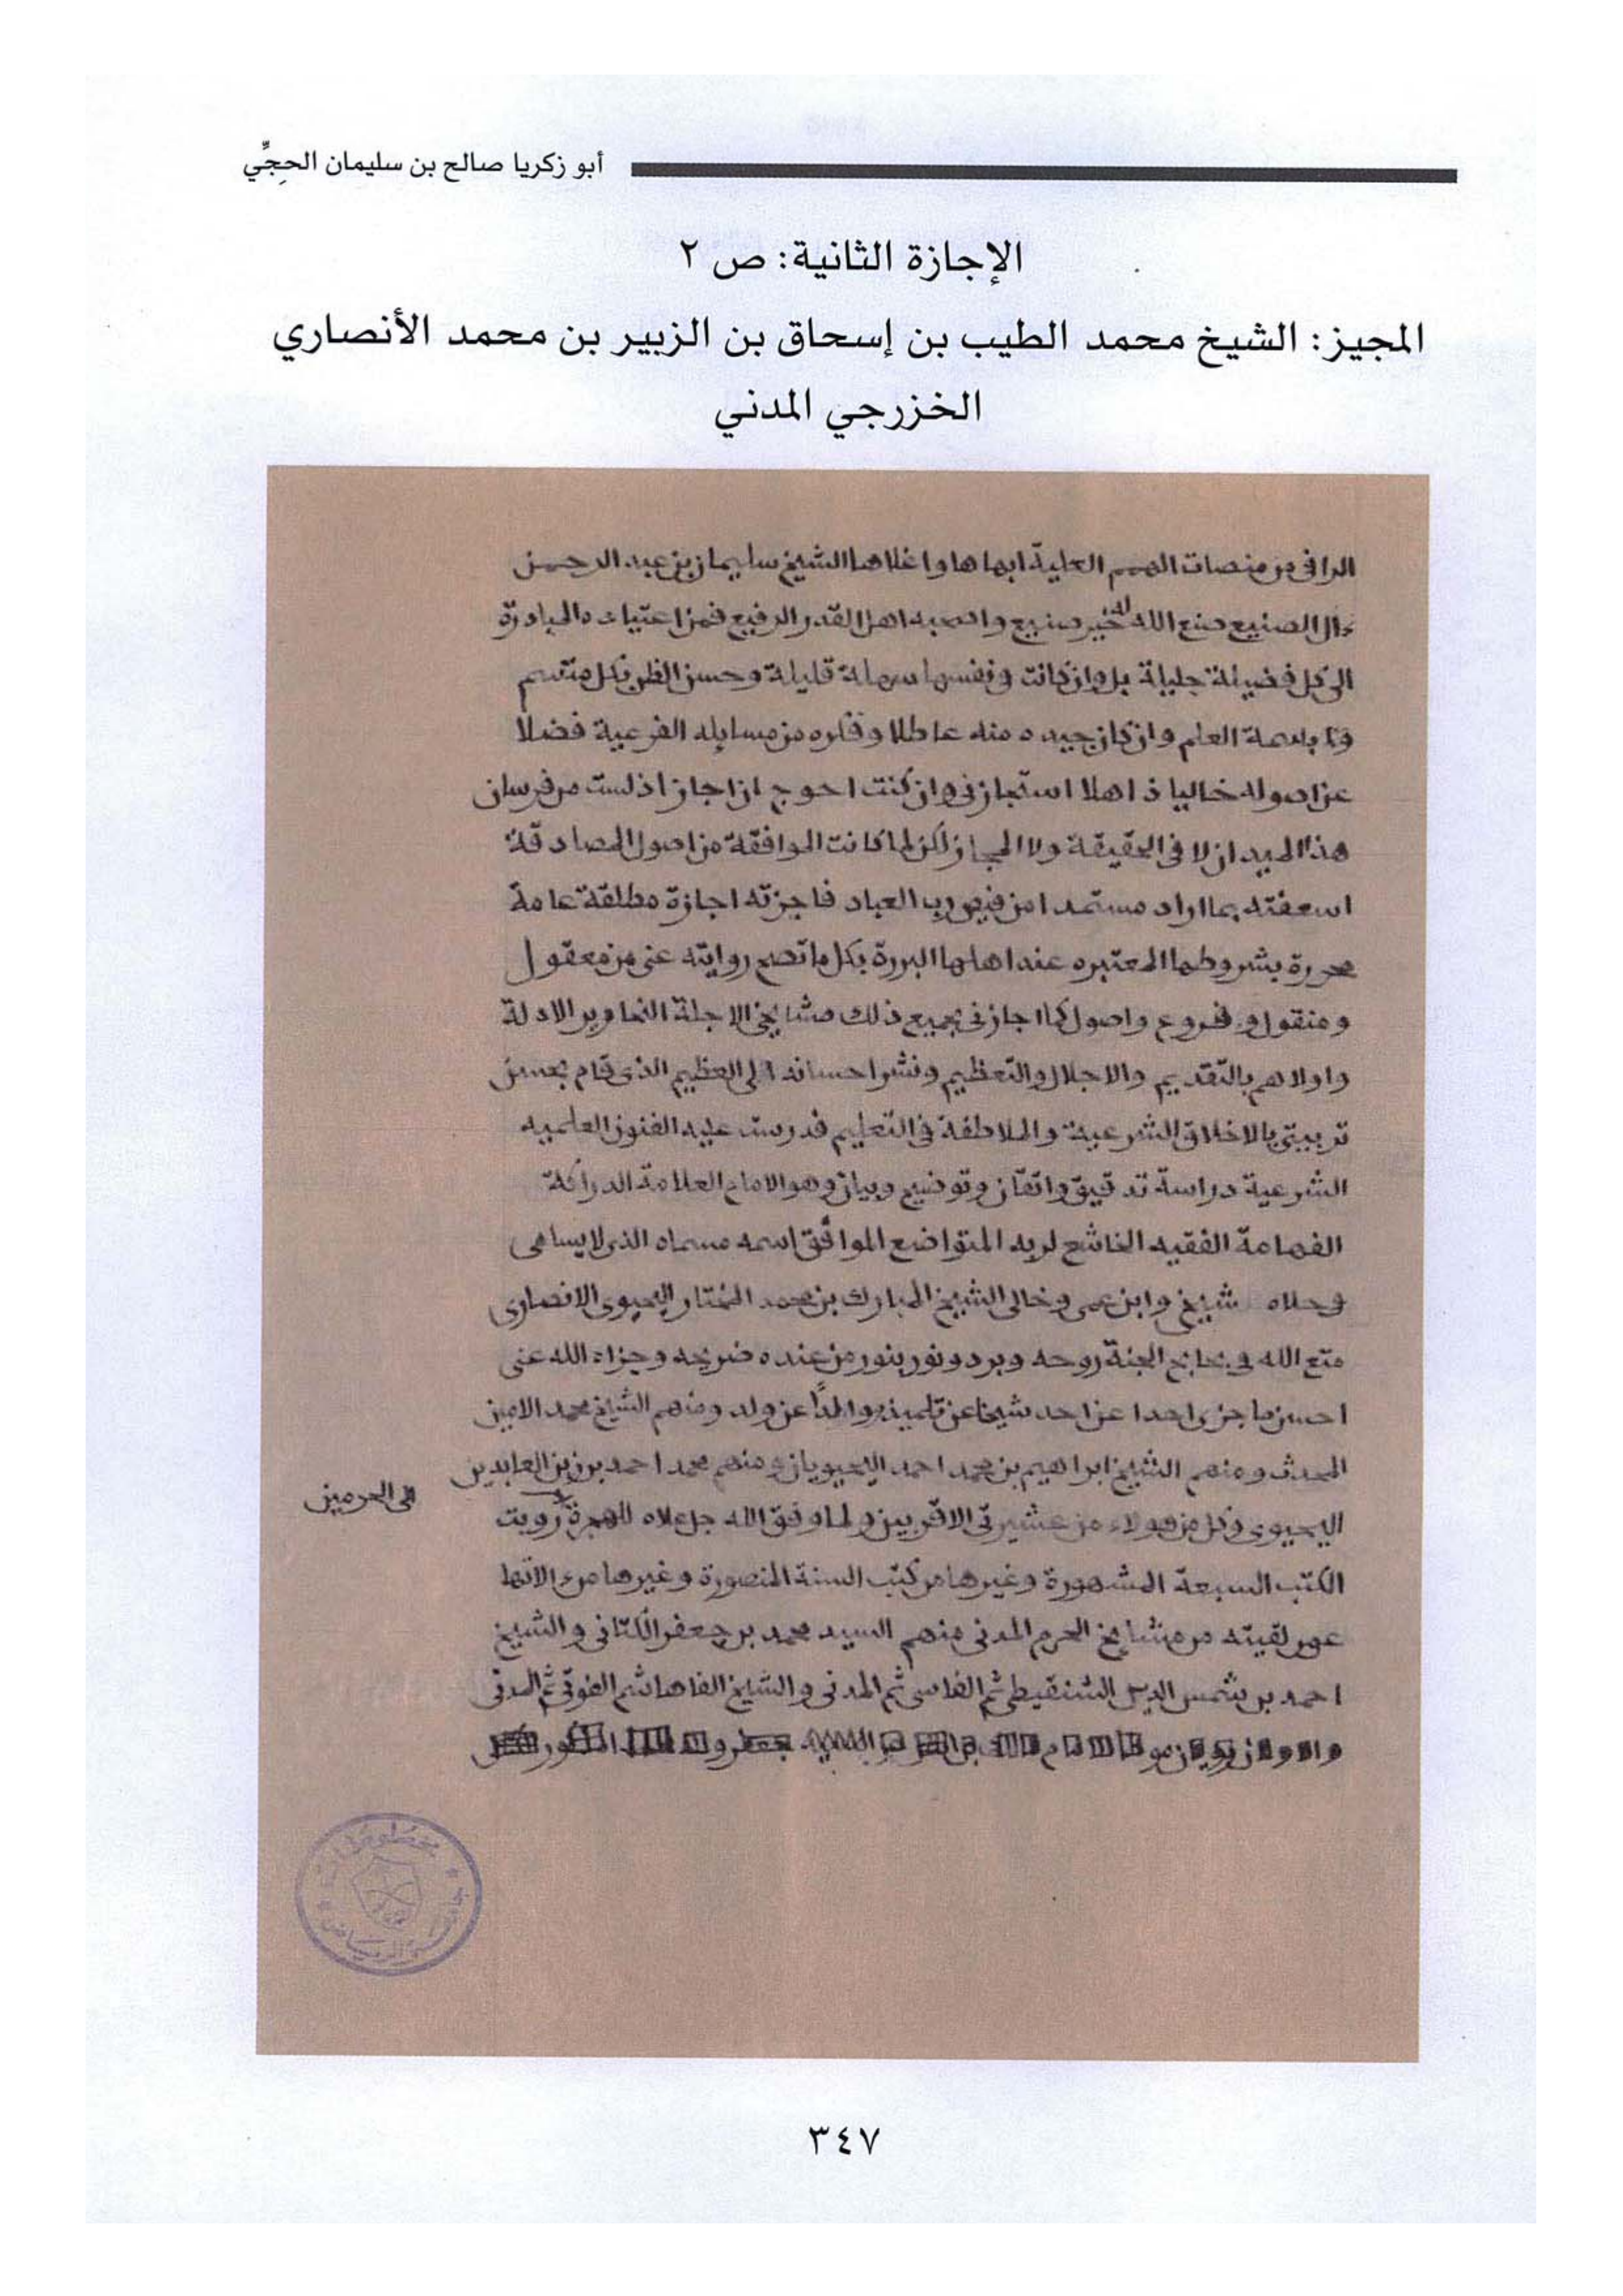 أبو زكريا صالح بن سليمان الحجِّي
الإجازة الثانية: ص ٢
المجيز: الشيخ محمد الطيب بن إسحاق بن الزبير بن محمد الأنصاري
الخزرجي المدني
الراقي من منصات الهمم العلية ابهاها واغلاها الشيخ سليمان بن عبد الرحمن
ال الصنيع صنع الله له خير صنيع والحبه اهل القدر الرفيع فمن اعتياده المبادرة
الى كل فضيلة جليلة بل وان كانت في نفسها سهلة قليلة وحسن الظن بكل متسم
بسمة العلم وان كان جيده منه عاطلا وفكره من مسايله الفرعية فضلا
عن اصوله خاليا ذاهلا استجازني وان كنت احوج ان اجاز اذ لست من فرسان
هذا الميدان لا في الحقيقة ولا المجاز لكن لما كانت الموافقة من اصول المصادقة
اسعفته بما اراد مستمدا من فيض رب العباد فاجزته اجازة مطلقة عامة
محررة بشروطها المعتبره عند اهلها البررة بكل ما تصح روايته عني من معقول
ومنقول وفروع واصول كما اجازني بجميع ذلك مشايخي الاجلة النحارير الادلة
واولاهم بالتقديم والاجلال والتعظيم ونشر احسانه الي العظيم الذي قام بحسن
تربيتي بالاخلاق الشرعية والملاطفة في التعليم فدرست عليه الفنون العلميه
الشرعية دراسة تدقيق واتقان وتوضيح وبيان وهو الامام العلامة الدراكة
الفهامة الفقيه الخاشع لربه المتواضع الموافق اسمه مسماه الذي لا يسامى
وحلاه شيخي وابن عمي وخالي الشيخ المبارك بن محمد المختار اليحيوي الانصاري
متع الله في بحابح الجنة روحه وبرد ونور بنور من عنده ضريحه وجزاه الله عني
احسن ما جزى احدا عن احد شيخا عن تلميذ ووالدًا عن ولد ومنهم الشيخ محمد الامين
المحدث ومنهم الشيخ ابراهيم بن محمد احمد اليحيويان ومنهم محمد احمد بن زين العابدين
اليحيوي وكل من هولاء من عشيرتي الاقربين ولما وفق الله جل علاه للهجرة رويت
الى الحرمين
الكتب السبعة المشهورة وغيرها من كتب السنة المنصورة وغيرها
عمن لقيته من مشايخ الحرم المدني منهم السيد محمد بن جعفر الكتاني والشيخ
احمد بن شمس الدين الشنقيطي ثم الفاسي ثم المدني والشيخ الفاهاشم الفوتي ثم المدني
مخطوطات
٣٤٧